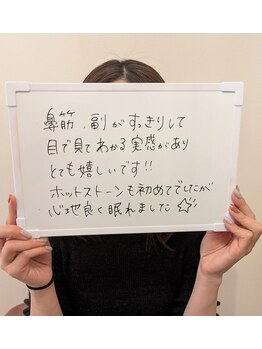 鼻筋、副がすっきりして
目で見てわかる実感があり
とても嬉しいです!!
ホットストーンも初めてでしたが
心地良く眠れました☆